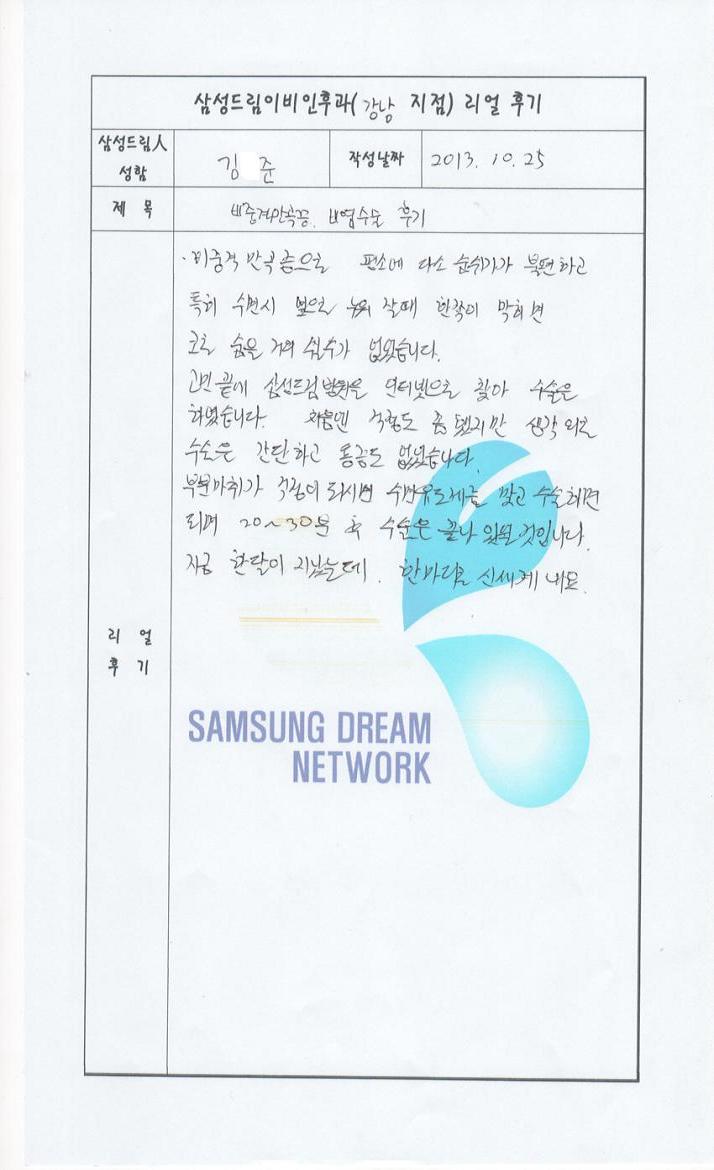 삼성드림이비인후과( 강남 지점) 리얼 후기
삼성드림人
성함
김 준
작성날짜
2013. 10. 25
제 목
비중격만곡증. 비염수술 후기
· 비중격 만곡증으로 평소에 다소 숨쉬기가 불편하고
특히 수면시 옆으로 누워 잘때 한쪽이 막히면
코로 숨을 거의 쉴수가 없었습니다.
고민 끝에 삼성드림병원을 인터넷으로 찾아 수술을
하였습니다. 처음엔 걱정도 좀 됐지만 생각 외로
수술은 간단하고 통증도 없었습니다.
부분마취가 걱정이 되시면 수면유도제를 맞고 수술하면
되며 20~30분 후 수술은 끝나 있을 것입니다.
지금 한달이 지났는데. 한마디로 신세계 네요.
리 얼
후 기
SAMSUNG DREAM
NETWORK